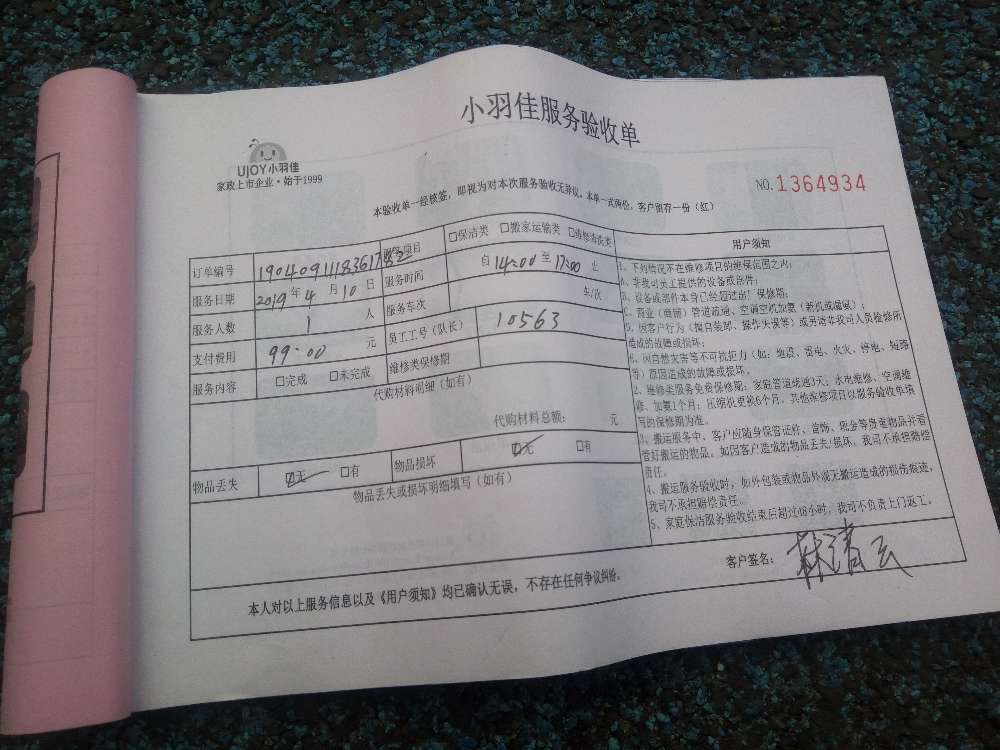 小羽佳服务验收单
UjOY小羽佳
家政上市企业·始于1999
NO.1364934
本验收单一经核签，即视为对本次服务验收无异议。本单一式两份，客户留存一份（红）
订单编号 服务项目 □保洁类 □搬家运输类 □维修清洗类
服务日期 2019年4月10日 服务时间 自14:00至17:00止
服务人数 1 人 服务车次 车/次
支付费用 99.00 元 员工工号（队长） 10563
服务内容 □完成 □未完成 维修类保修期
代购材料明细（如有）
代购材料总额： 元
物品丢失 ☑无 □有 物品损坏 ☑无 □有
物品丢失或损坏明细填写（如有）
用户须知
1、下列情况不在维修项目的维保范围之内：
A、非我司员工提供的设备或部件；
B、设备或部件本身已经超过出厂保修期；
C、商业（商铺）管道疏通、空调空机加氨（新机或漏氨）；
D、因客户行为（擅自装卸、操作失误等）或另请非我司人员检修所
造成的故障或损坏；
E、因自然灾害等不可抗拒力（如：地震、雷电、火灾、停电、短路
等）原因造成的故障或损坏。
2、维修类服务免费保修期：家庭管道疏通3天；水电维修、空调维
修、加氨1个月；压缩机更换6个月。其他维修项目以服务验收单填
写的保修期为准。
3、搬运服务中，客户应随身保管证件、首饰、现金等贵重物品并看
管好搬运的物品。如因客户造成的物品丢失/损坏，我司不承担赔偿
责任。
4、搬运服务验收时，如外包装或物品外观无搬运造成的损伤痕迹，
我司不承担赔偿责任。
5、家庭保洁服务验收结束后超过48小时，我司不负责上门返工。
客户签名：
本人对以上服务信息以及《用户须知》均已确认无误，不存在任何争议纠纷。